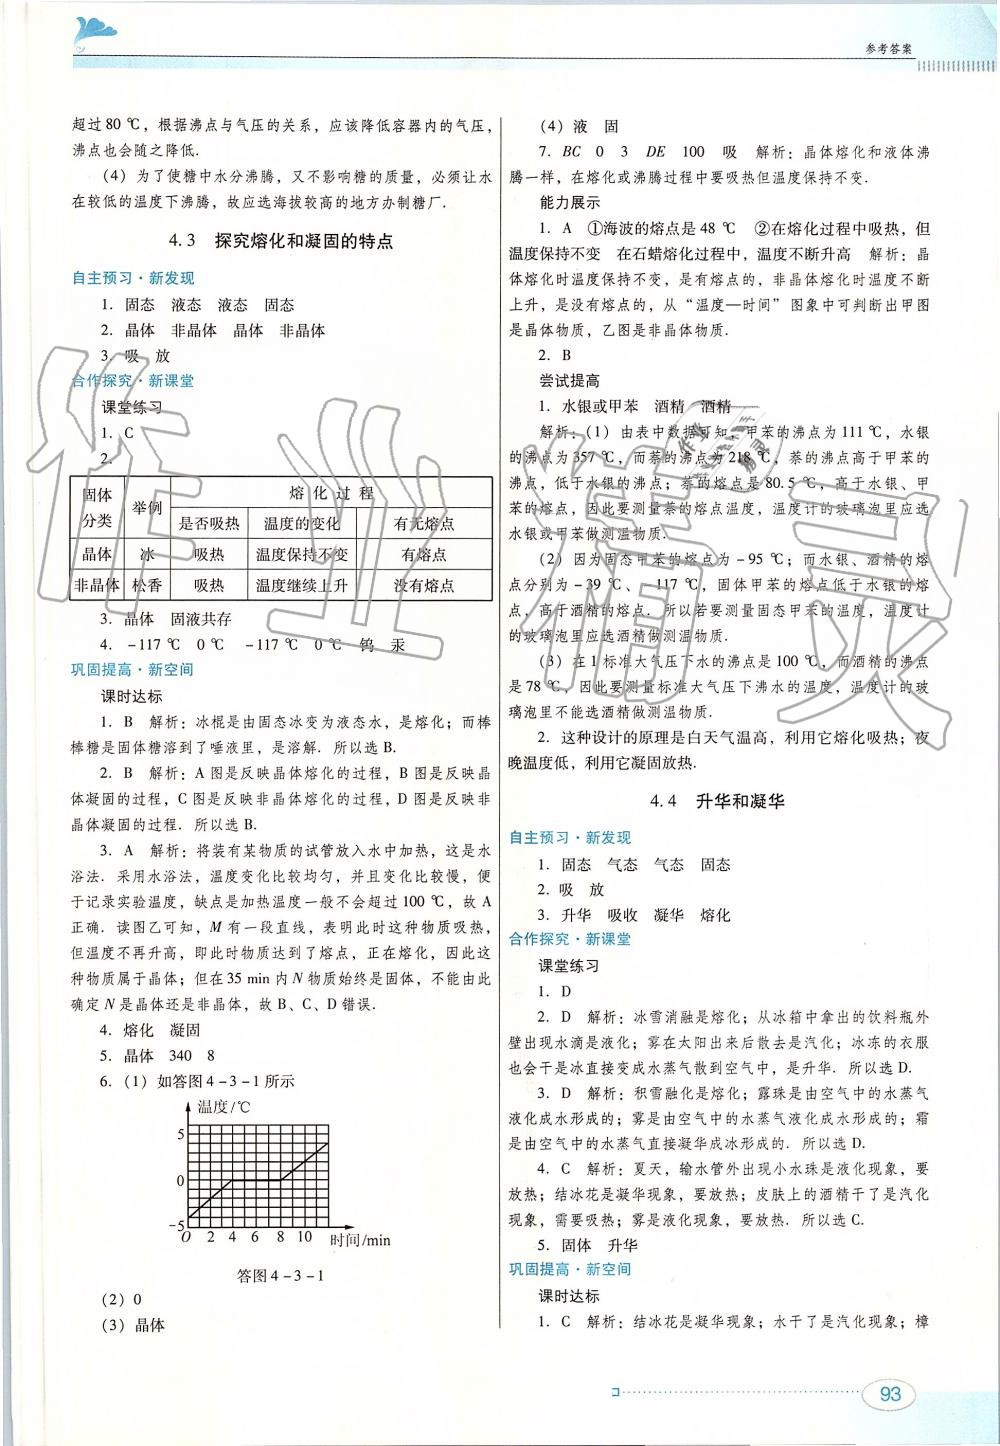 参考答案
超过80 ℃，根据沸点与气压的关系，应该降低容器内的气压，
沸点也会随之降低.
(4) 为了使糖中水分沸腾，又不影响糖的质量，必须让水
在较低的温度下沸腾，故应选海拔较高的地方办制糖厂.
4.3 探究熔化和凝固的特点
自主预习·新发现
1. 固态 液态 液态 固态
2. 晶体 非晶体 晶体 非晶体
3. 吸 放
合作探究·新课堂
课堂练习
1. C
2.
固体分类 举例 熔化过程
是否吸热 温度的变化 有无熔点
晶体 冰 吸热 温度保持不变 有熔点
非晶体 松香 吸热 温度继续上升 没有熔点
3. 晶体 固液共存
4. -117 ℃ 0 ℃ -117 ℃ 0 ℃ 钨 汞
巩固提高·新空间
课时达标
1. B 解析：冰棍是由固态冰变为液态水，是熔化；而棒
棒糖是固体糖溶到了唾液里，是溶解. 所以选 B.
2. B 解析：A 图是反映晶体熔化的过程，B 图是反映晶
体凝固的过程，C 图是反映非晶体熔化的过程，D 图是反映非
晶体凝固的过程. 所以选 B.
3. A 解析：将装有某物质的试管放入水中加热，这是水
浴法. 采用水浴法，温度变化比较均匀，并且变化比较慢，便
于记录实验温度，缺点是加热温度一般不会超过 100 ℃，故 A
正确. 读图乙可知，M 有一段直线，表明此时这种物质吸热，
但温度不再升高，即此时物质达到了熔点，正在熔化，因此这
种物质属于晶体；但在 35 min 内 N 物质始终是固体，不能由此
确定 N 是晶体还是非晶体，故 B、C、D 错误.
4. 熔化 凝固
5. 晶体 340 8
6. (1) 如答图 4-3-1 所示
温度/℃
5
0
-5
O 2 4 6 8 10 时间/min
答图 4-3-1
(2) 0
(3) 晶体
(4) 液 固
7. BC 0 3 DE 100 吸 解析：晶体熔化和液体沸
腾一样，在熔化或沸腾过程中要吸热但温度保持不变.
能力展示
1. A ①海波的熔点是 48 ℃ ②在熔化过程中吸热，但
温度保持不变 在石蜡熔化过程中，温度不断升高 解析：晶
体熔化时温度保持不变，是有熔点的，非晶体熔化时温度不断
上升，是没有熔点的，从“温度—时间”图象中可判断出甲图
是晶体物质，乙图是非晶体物质.
2. B
尝试提高
1. 水银或甲苯 酒精 酒精
解析：(1) 由表中数据可知，甲苯的沸点为 111 ℃，水银
的沸点为 357 ℃，而萘的沸点为 218 ℃，萘的沸点高于甲苯的
沸点，低于水银的沸点；萘的熔点是 80.5 ℃，高于水银、甲
苯的熔点，因此要测量萘的熔点温度，温度计的玻璃泡里应选
水银或甲苯做测温物质.
(2) 因为固态甲苯的熔点为 -95 ℃；而水银、酒精的熔
点分别为 -39 ℃、-117 ℃，固体甲苯的熔点低于水银的熔
点，高于酒精的熔点. 所以若要测量固态甲苯的温度，温度计
的玻璃泡里应选酒精做测温物质.
(3) 在 1 标准大气压下水的沸点是 100 ℃，而酒精的沸点
是 78 ℃，因此要测量标准大气压下沸水的温度，温度计的玻
璃泡里不能选酒精做测温物质.
2. 这种设计的原理是白天气温高，利用它熔化吸热；夜
晚温度低，利用它凝固放热.
4.4 升华和凝华
自主预习·新发现
1. 固态 气态 气态 固态
2. 吸 放
3. 升华 吸收 凝华 熔化
合作探究·新课堂
课堂练习
1. D
2. D 解析：冰雪消融是熔化；从冰箱中拿出的饮料瓶外
壁出现水滴是液化；雾在太阳出来后散去是汽化；冰冻的衣服
也会干是冰直接变成水蒸气散到空气中，是升华. 所以选 D.
3. D 解析：积雪融化是熔化；露珠是由空气中的水蒸气
液化成水形成的；雾是由空气中的水蒸气液化成水形成的；霜
是由空气中的水蒸气直接凝华成冰形成的. 所以选 D.
4. C 解析：夏天，输水管外出现小水珠是液化现象，要
放热；结冰花是凝华现象，要放热；皮肤上的酒精干了是汽化
现象，需要吸热；雾是液化现象，要放热. 所以选 C.
5. 固体 升华
巩固提高·新空间
课时达标
1. C 解析：结冰花是凝华现象；水干了是汽化现象；樟
93
作业精灵